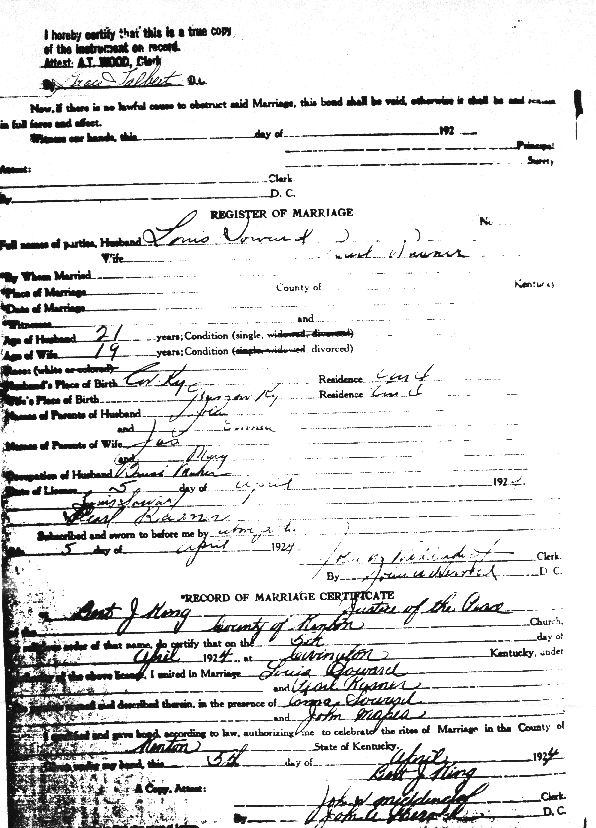 I hereby certify that this is a true copy
of the instrument on record.
Attest: A.T. WOOD, Clerk
By Grace Talbert D.C.
Now, if there is no lawful cause to obstruct said Marriage, this bond shall be void, otherwise it shall be and remain
in full force and effect.
Witness our hands, this day of 192
Principal
Surety
Attest:
Clerk
By D. C.
REGISTER OF MARRIAGE
No.
Full names of parties, Husband Louis Soward
Wife
By Whom Married
Place of Marriage County of Kentucky
Date of Marriage
Witnesses and
Age of Husband 21 years; Condition (single, widowed, divorced)
Age of Wife 19 years; Condition (single widowed divorced)
Races (white or colored)
Husband's Place of Birth Cov Ky Residence
Wife's Place of Birth Ky Residence
Names of Parents of Husband John
and
Names of Parents of Wife Jas
and Mary
Occupation of Husband
Date of License 5 day of April 192
Louis Soward
Pearl
Subscribed and sworn to before me by
this 5 day of April 1924
Clerk.
By D C.
RECORD OF MARRIAGE CERTIFICATE
I, Bert J King Justice of the Peace
of the County of Kenton Church,
or religious order of that name, do certify that on the 5th day of
April 1924 at Covington Kentucky, under
authority of the above license, I united in Marriage Louis Soward
and
the parties named and described therein, in the presence of
and John
I qualified and gave bond, according to law, authorizing me to celebrate the rites of Marriage in the County of
Kenton State of Kentucky.
Given under my hand, this 5th day of April 1924
Bert J King
A Copy, Attest:
Clerk.
By D. C.